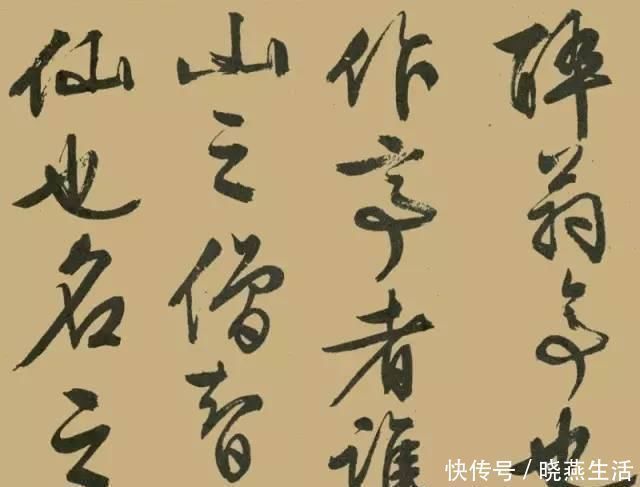 醉翁亭也
作亭者谁
山之僧智
仙也名之
快传号/晓燕生活